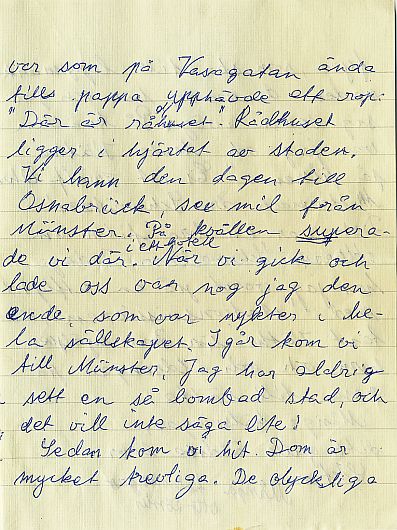 ver som på Vasagatan ända
tills pappa upphävde ett rop:
"Där är råhuset". Rådhuset
ligger i hjärtat av staden.
Vi hann den dagen till
Osnabrück, sex mil från
Münster. På kvällen supera-
de vi där. i ett hotell När vi gick och
lade oss var nog jag den
enda, som var nykter i he-
la sällskapet. Igår kom vi
till Münster. Jag har aldrig
sett en så bombad stad, och
det vill inte säga lite!
Sedan kom vi hit. Dom är
mycket trevliga. De olyckliga